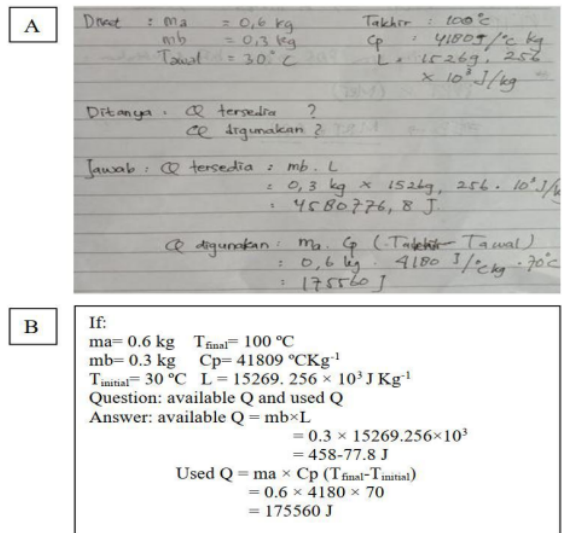 A
Diket : ma = 0,6 kg Takhir : 100°C
mb = 0,3 kg Cp : 4180 J/°C kg
Tawal = 30°C L = 15269, 256
× 10³ J/kg
Ditanya : Q tersedia ?
Q digunakan ?
Jawab : Q tersedia : mb . L
: 0,3 kg × 15269, 256 . 10³ J/k
: 4580776,8 J
Q digunakan : ma . Cp (Takhir - Tawal)
: 0,6 kg . 4180 J/°C kg . 70°C
: 175560 J
B
If:
ma= 0.6 kg Tfinal= 100 °C
mb= 0.3 kg Cp= 41809 °CKg⁻¹
Tinitial= 30 °C L = 15269. 256 × 10³ J Kg⁻¹
Question: available Q and used Q
Answer: available Q = mb×L
= 0.3 × 15269.256×10³
= 458-77.8 J
Used Q = ma × Cp (Tfinal-Tinitial)
= 0.6 × 4180 × 70
= 175560 J